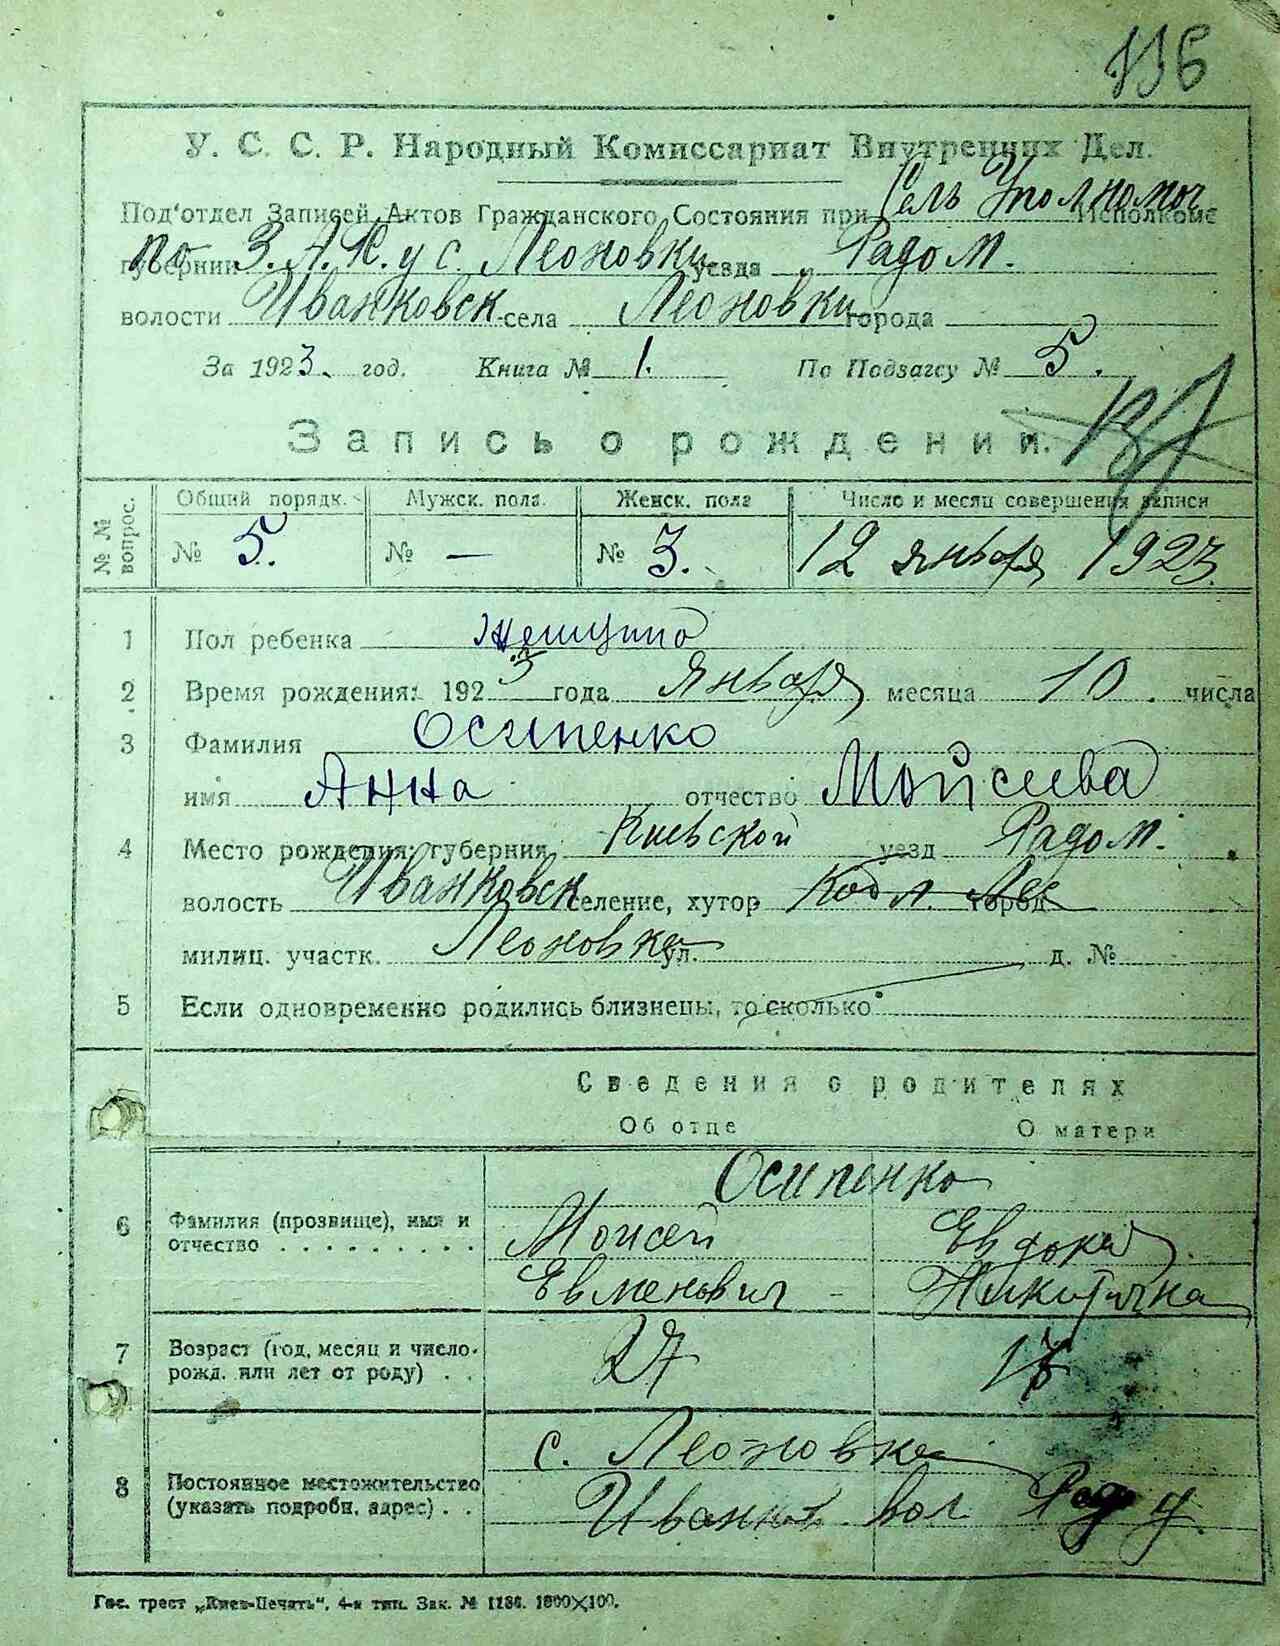 136
У. С. С. Р. Народный Комиссариат Внутренних Дел.
Под'отдел Записей Актов Гражданского Состояния при Сель Уполномоч Исполкоме
по З.А.К. у с. Леоновки губернии уезда Радом.
волости Иванковск села Леоновки города
За 1923. год. Книга № 1. По Подзагсу № 5.
Запись о рождении.
№№ вопрос. Общий порядк. Мужск. пола. Женск. пола Число и месяц совершения записи
№ 5. № — № 3. 12 января 1923.
1 Пол ребенка женщина
2 Время рождения: 1923 года января месяца 10. числа
3 Фамилия Осипенко
имя Анна отчество Мойсеева
4 Место рождения: губерния Киевской уезд Радом.
волость Иванковск селение, хутор город
милиц. участк. Леоновка ул. д. №
5 Если одновременно родились близнецы, то сколько
Сведения о родителях
Об отце О матери
Осипенко
6 Фамилия (прозвище), имя и Моисей Евдокия
отчество . . . . . . . . . Евменович Никитична
7 Возраст (год, месяц и число 27 17
рожд. или лет от роду) . .
с. Леоновка
8 Постоянное местожительство Иванков. вол. Рад у.
(указать подробн. адрес) . .
Гос. трест „Киев-Печать", 4-я тип. Зак. № 1186. 1800×100.